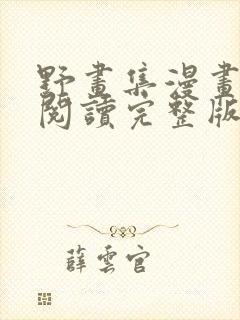 野畫集漫畫
閱讀完整版
薛雲官